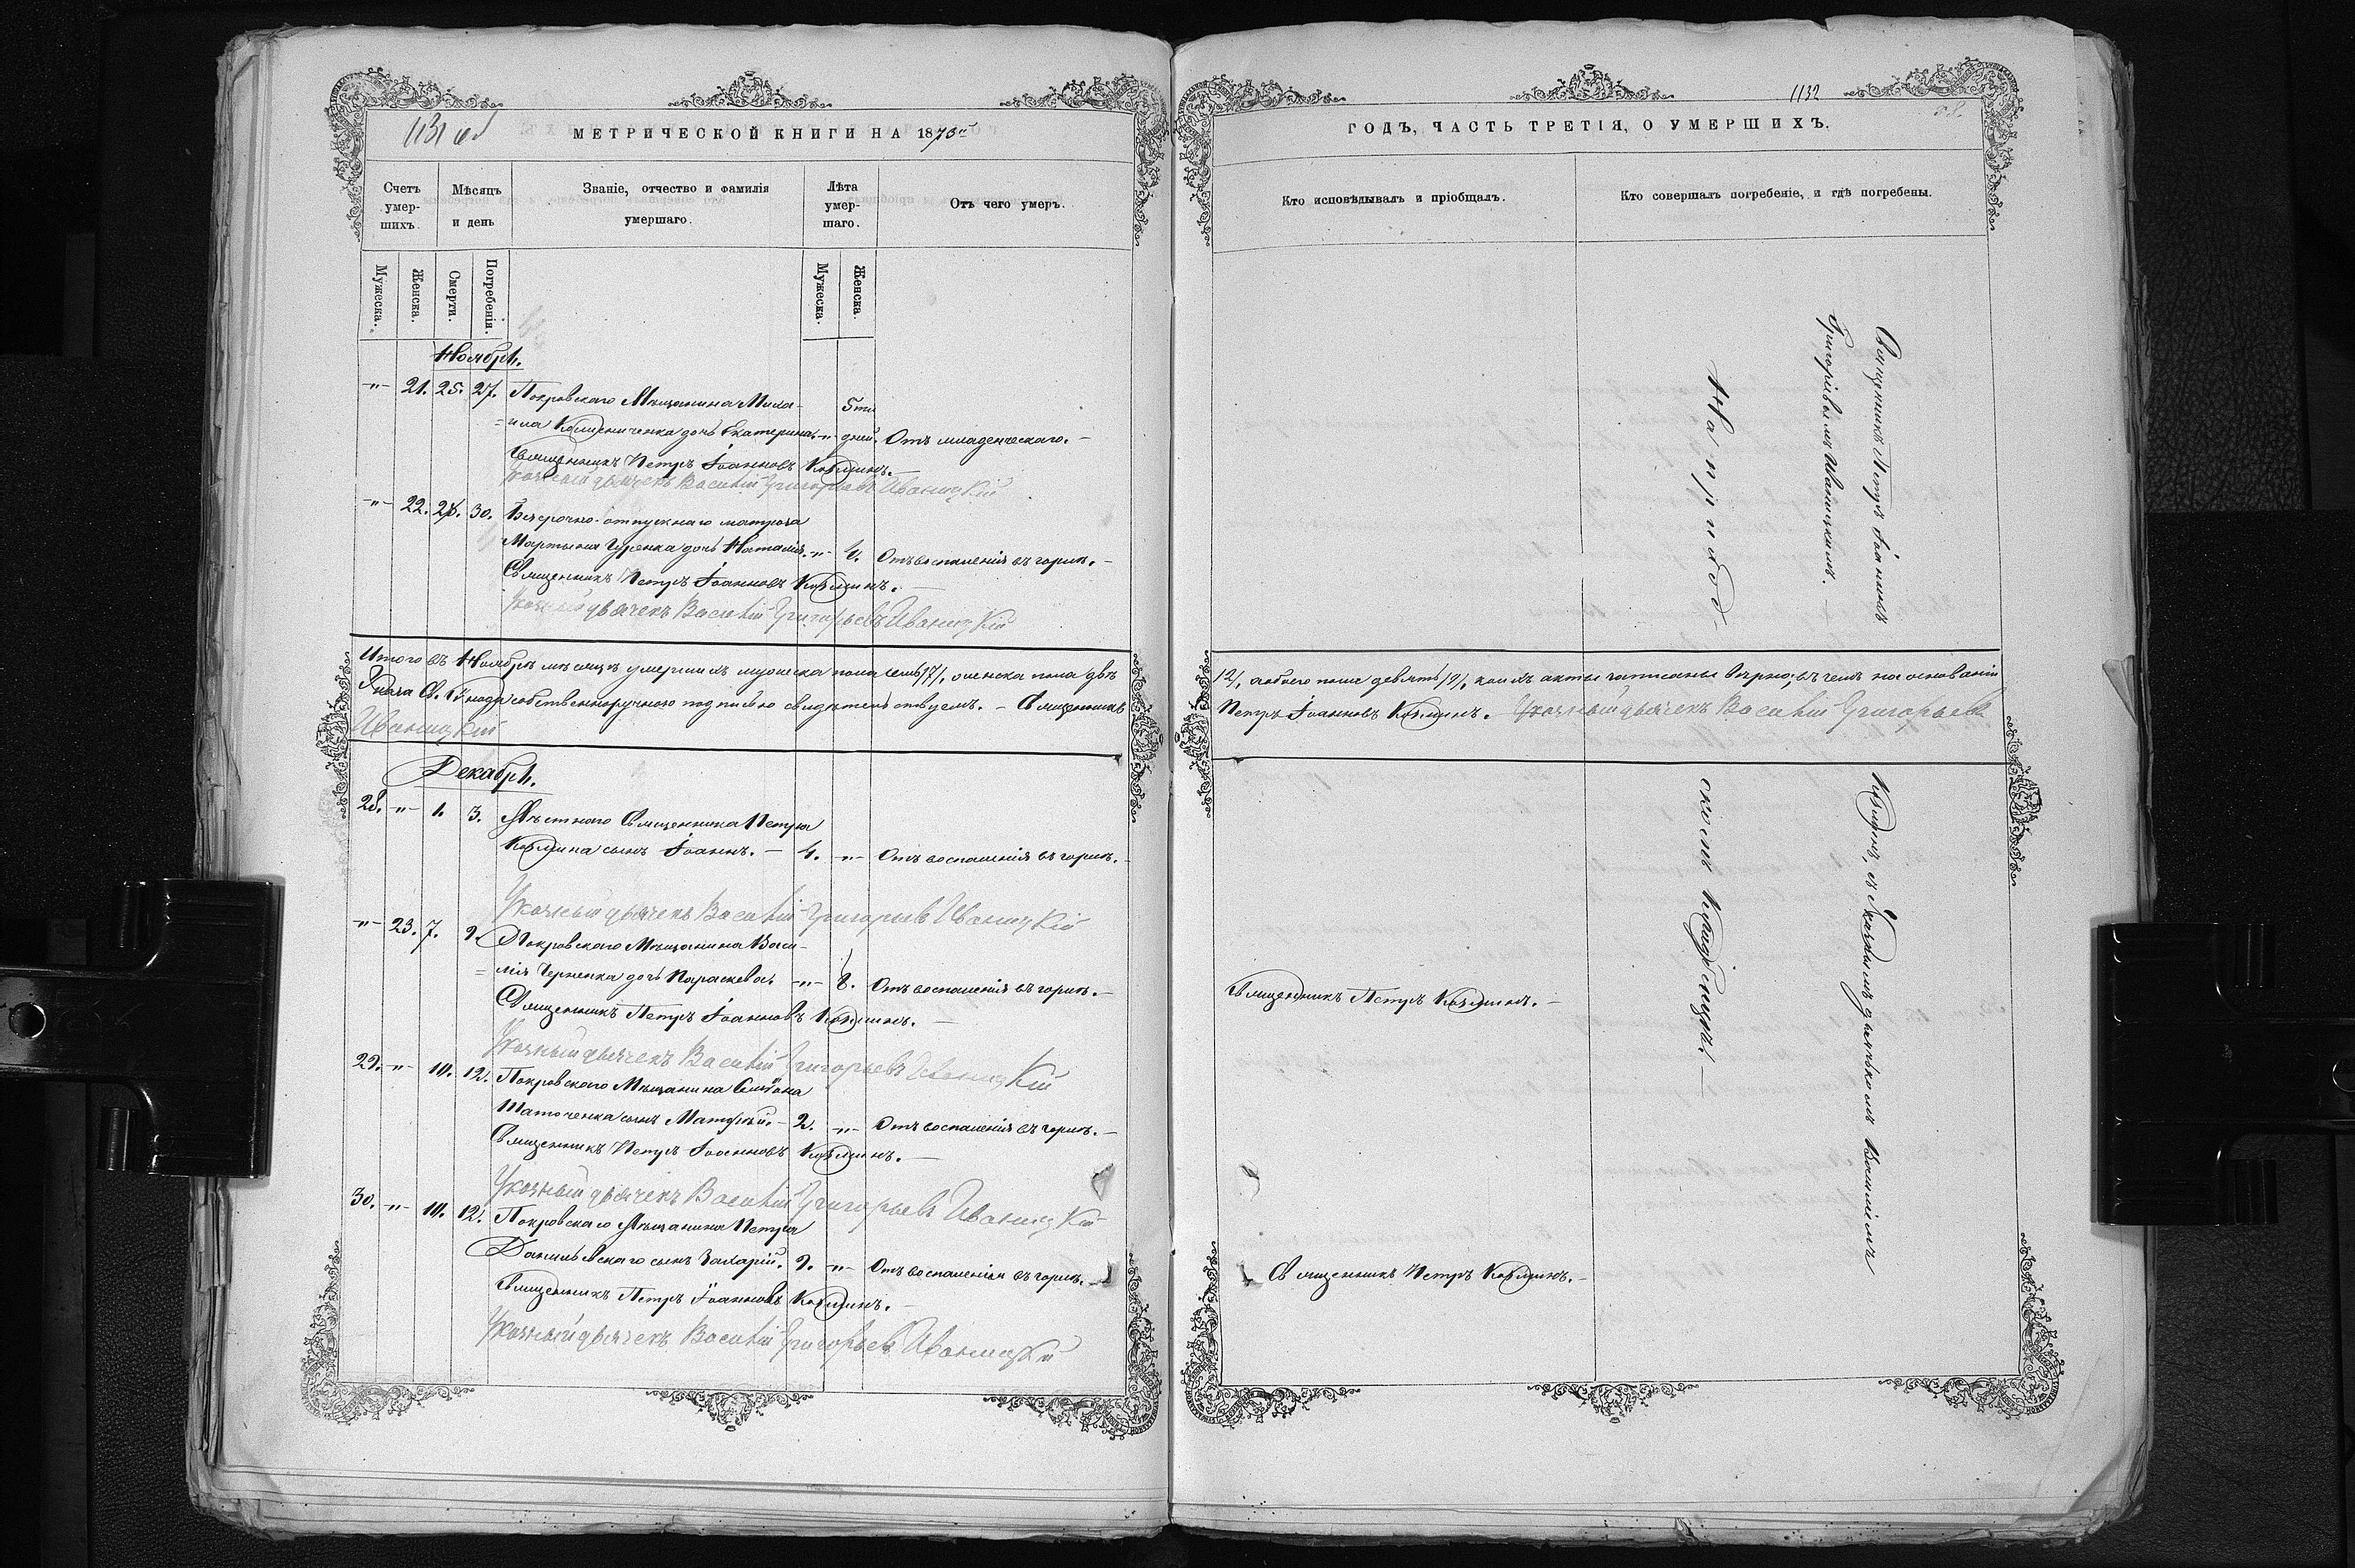 1131 об
МЕТРИЧЕСКОЙ КНИГИ НА 1876й
Счетъ умер-шихъ.
Мѣсяцъ и день
Званіе, отчество и фамилія умершаго.
Лѣта умер-шаго.
Отъ чего умеръ.
Мужеска.
Женска.
Смерти.
Погребенія.
Мужеска.
Женска.
Ноябрь.
-"- 21. 25. 27. Покровскаго Мѣщанина Миха- 5ти
=ила дочь Екатерина. -"- дней. Отъ младенческаго. -
Священникъ Петръ Іоанновъ Козминъ. -
Указный дьячекъ Василій Григорьевъ Иваницкій
-"- 22. 28. 30. Безсрочно-отпускнаго матроса
Мартына Гуренка дочь Наталія. -"- Отъ воспаленія въ горлѣ. -
Священникъ Петръ Іоанновъ Козминъ. -
Указный дьячекъ Василій Григорьевъ Иваницкій
Итого въ Ноябрѣ мѣсяцѣ умершихъ мужеска пола семь /7/, женска пола двѣ
Указа Св. Сѵнода собственноручною подписью свидѣтельствуемъ. - Священникъ
Иваницкій
Декабрь.
28. -"- 1. 3. Мѣстнаго Священника Петра
Козмина сынъ Іоаннъ. - 4. -"- Отъ воспаленія въ горлѣ. -
Указный дьячекъ Василій Григорьевъ Иваницкій
-"- 23. 7. 9. Покровскаго Мѣщанина Васи-
=лія Черненка дочь Параскева. -"- 8. Отъ воспаленія въ горлѣ. -
Священникъ Петръ Іоанновъ Козминъ. -
Указный дьячекъ Василій Григорьевъ Иваницкій
29. -"- 10. 12. Покровскаго Мѣщанина Симеона
сынъ Матѳей. - 2. -"- Отъ воспаленія въ горлѣ. -
Священникъ Петръ Іоанновъ Козминъ. -
Указный дьячекъ Василій Григорьевъ Иваницкій
30. -"- 10. 12. Покровскаго Мѣщанина Петра
Данилевскаго сынъ Захарій. 9. -"- Отъ воспаленія въ горлѣ. -
Священникъ Петръ Іоанновъ Козминъ. -
Указный дьячекъ Василій Григорьевъ Иваницкій
1132
ГОДЪ, ЧАСТЬ ТРЕТІЯ, О УМЕРШИХЪ.
Кто исповѣдывалъ и пріобщалъ.
Кто совершалъ погребеніе, и гдѣ погребены.
Священникъ Петръ Іоанновъ
Григоріевымъ Иваницкимъ. -
На приход-
/2/, а обоего пола девять /9/, коихъ акты записаны вѣрно, въ чемъ на основаніи
Петръ Іоанновъ Козминъ. Указный дьячекъ Василій Григорьевъ
Козминъ, съ Указнымъ дьячькомъ Василіемъ
скомъ кладбищѣ. -
Священникъ Петръ Козминъ. -
Священникъ Петръ Козминъ. -